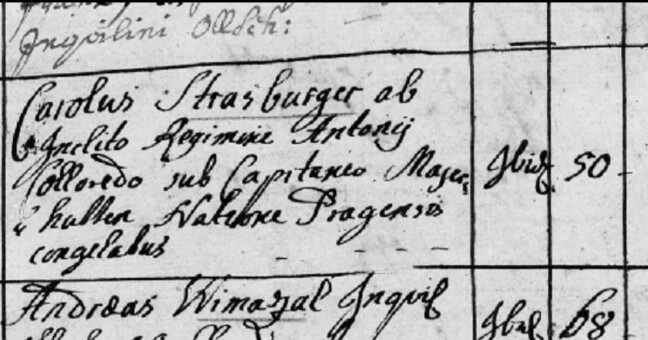 Inquilini
Carolus Strasburger ab
Inclito Regimine Antonij
Colloredo sub Capitaneo Mayer- Ibid. 50
hullen Natione Pragensis
congelatus
Andreas Wimazal Inquil
68